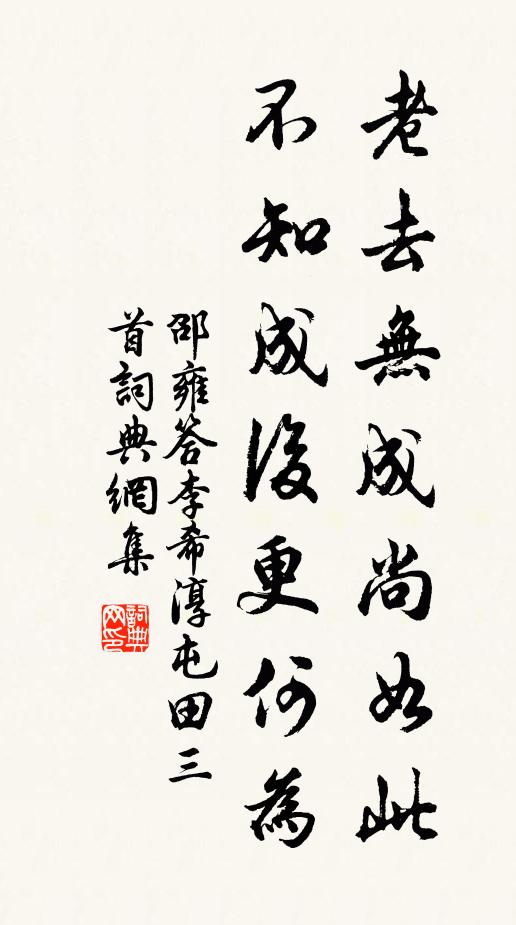 老去無成尚如此
不知成後更何為
邵雍答李希淳屯田三
首詞典網集
詞典
网印